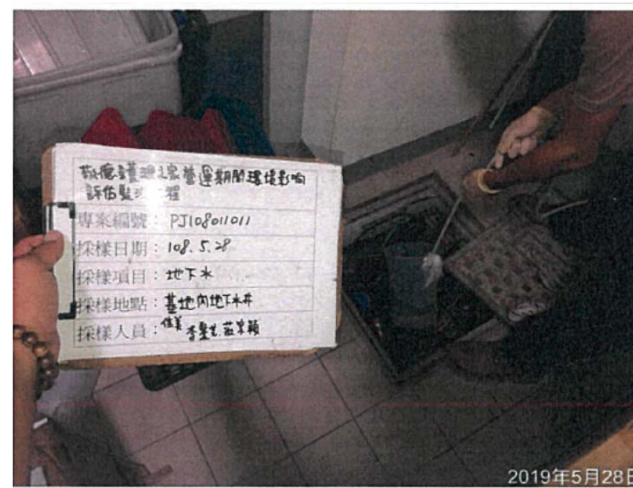 護理之家營運期間環境影响
評估監測工程
專案編號：PJ108011011
採樣日期：108.5.28
採樣項目：地下水
採樣地點：基地內地下水井
採樣人員：佳美
2019年5月28日